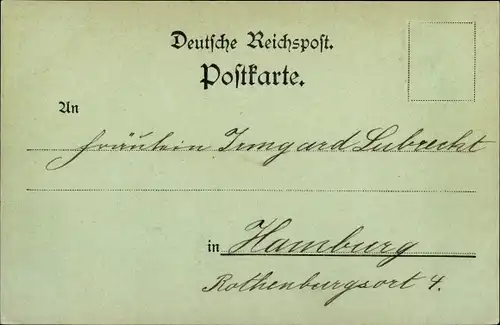 Deutsche Reichspost.
Postkarte.
An
Fräulein Irmgard Lubrecht
in Hamburg
Rothenburgsort 4.